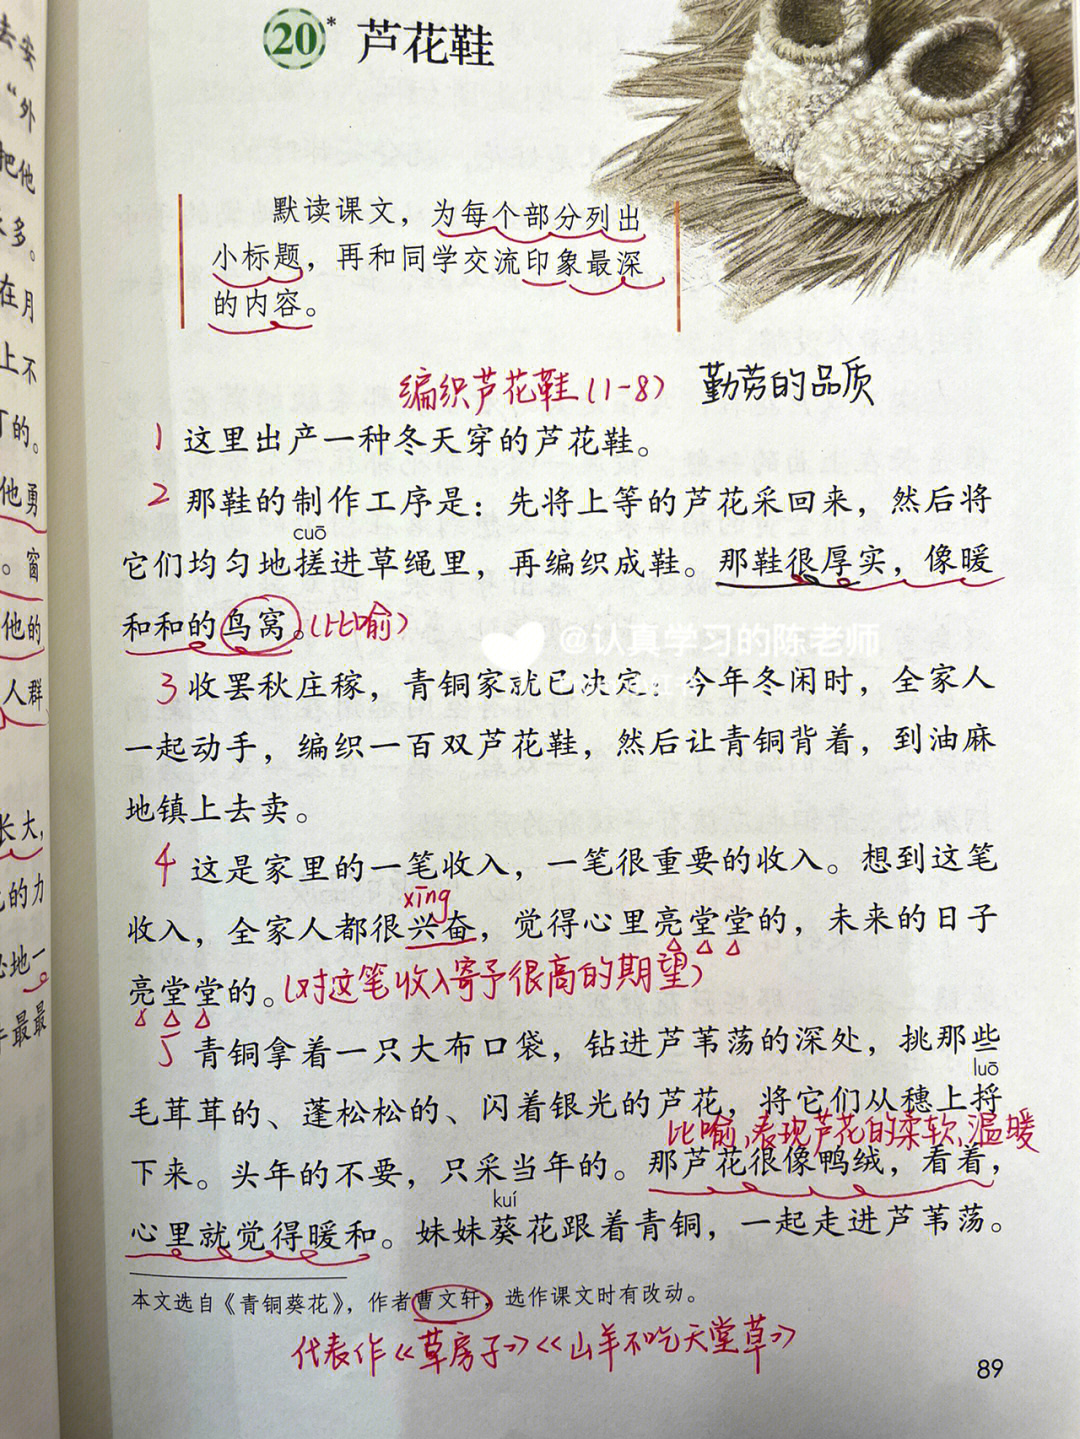 20* 芦花鞋
默读课文，为每个部分列出
小标题，再和同学交流印象最深
的内容。
编织芦花鞋(1-8) 勤劳的品质
1 这里出产一种冬天穿的芦花鞋。
2 那鞋的制作工序是：先将上等的芦花采回来，然后将
cuō
它们均匀地搓进草绳里，再编织成鞋。那鞋很厚实，像暖
和和的鸟窝。(比喻)
@认真学习的陈老师
3 收罢秋庄稼，青铜家就已决定：今年冬闲时，全家人
一起动手，编织一百双芦花鞋，然后让青铜背着，到油麻
地镇上去卖。
4 这是家里的一笔收入，一笔很重要的收入。想到这笔
xīng
收入，全家人都很兴奋，觉得心里亮堂堂的，未来的日子
亮堂堂的。(对这笔收入寄予很高的期望)
5 青铜拿着一只大布口袋，钻进芦苇荡的深处，挑那些
luō
毛茸茸的、蓬松松的、闪着银光的芦花，将它们从穗上捋
比喻，表现芦花的柔软、温暖
下来。头年的不要，只采当年的。那芦花很像鸭绒，看着，
kuí
心里就觉得暖和。妹妹葵花跟着青铜，一起走进芦苇荡。
本文选自《青铜葵花》，作者曹文轩，选作课文时有改动。
代表作《草房子》《山羊不吃天堂草》
89
去安
“外
把他
多。
在月
上不
的。
他勇
。窗
他的
人群
长大，
的力
地一
最最